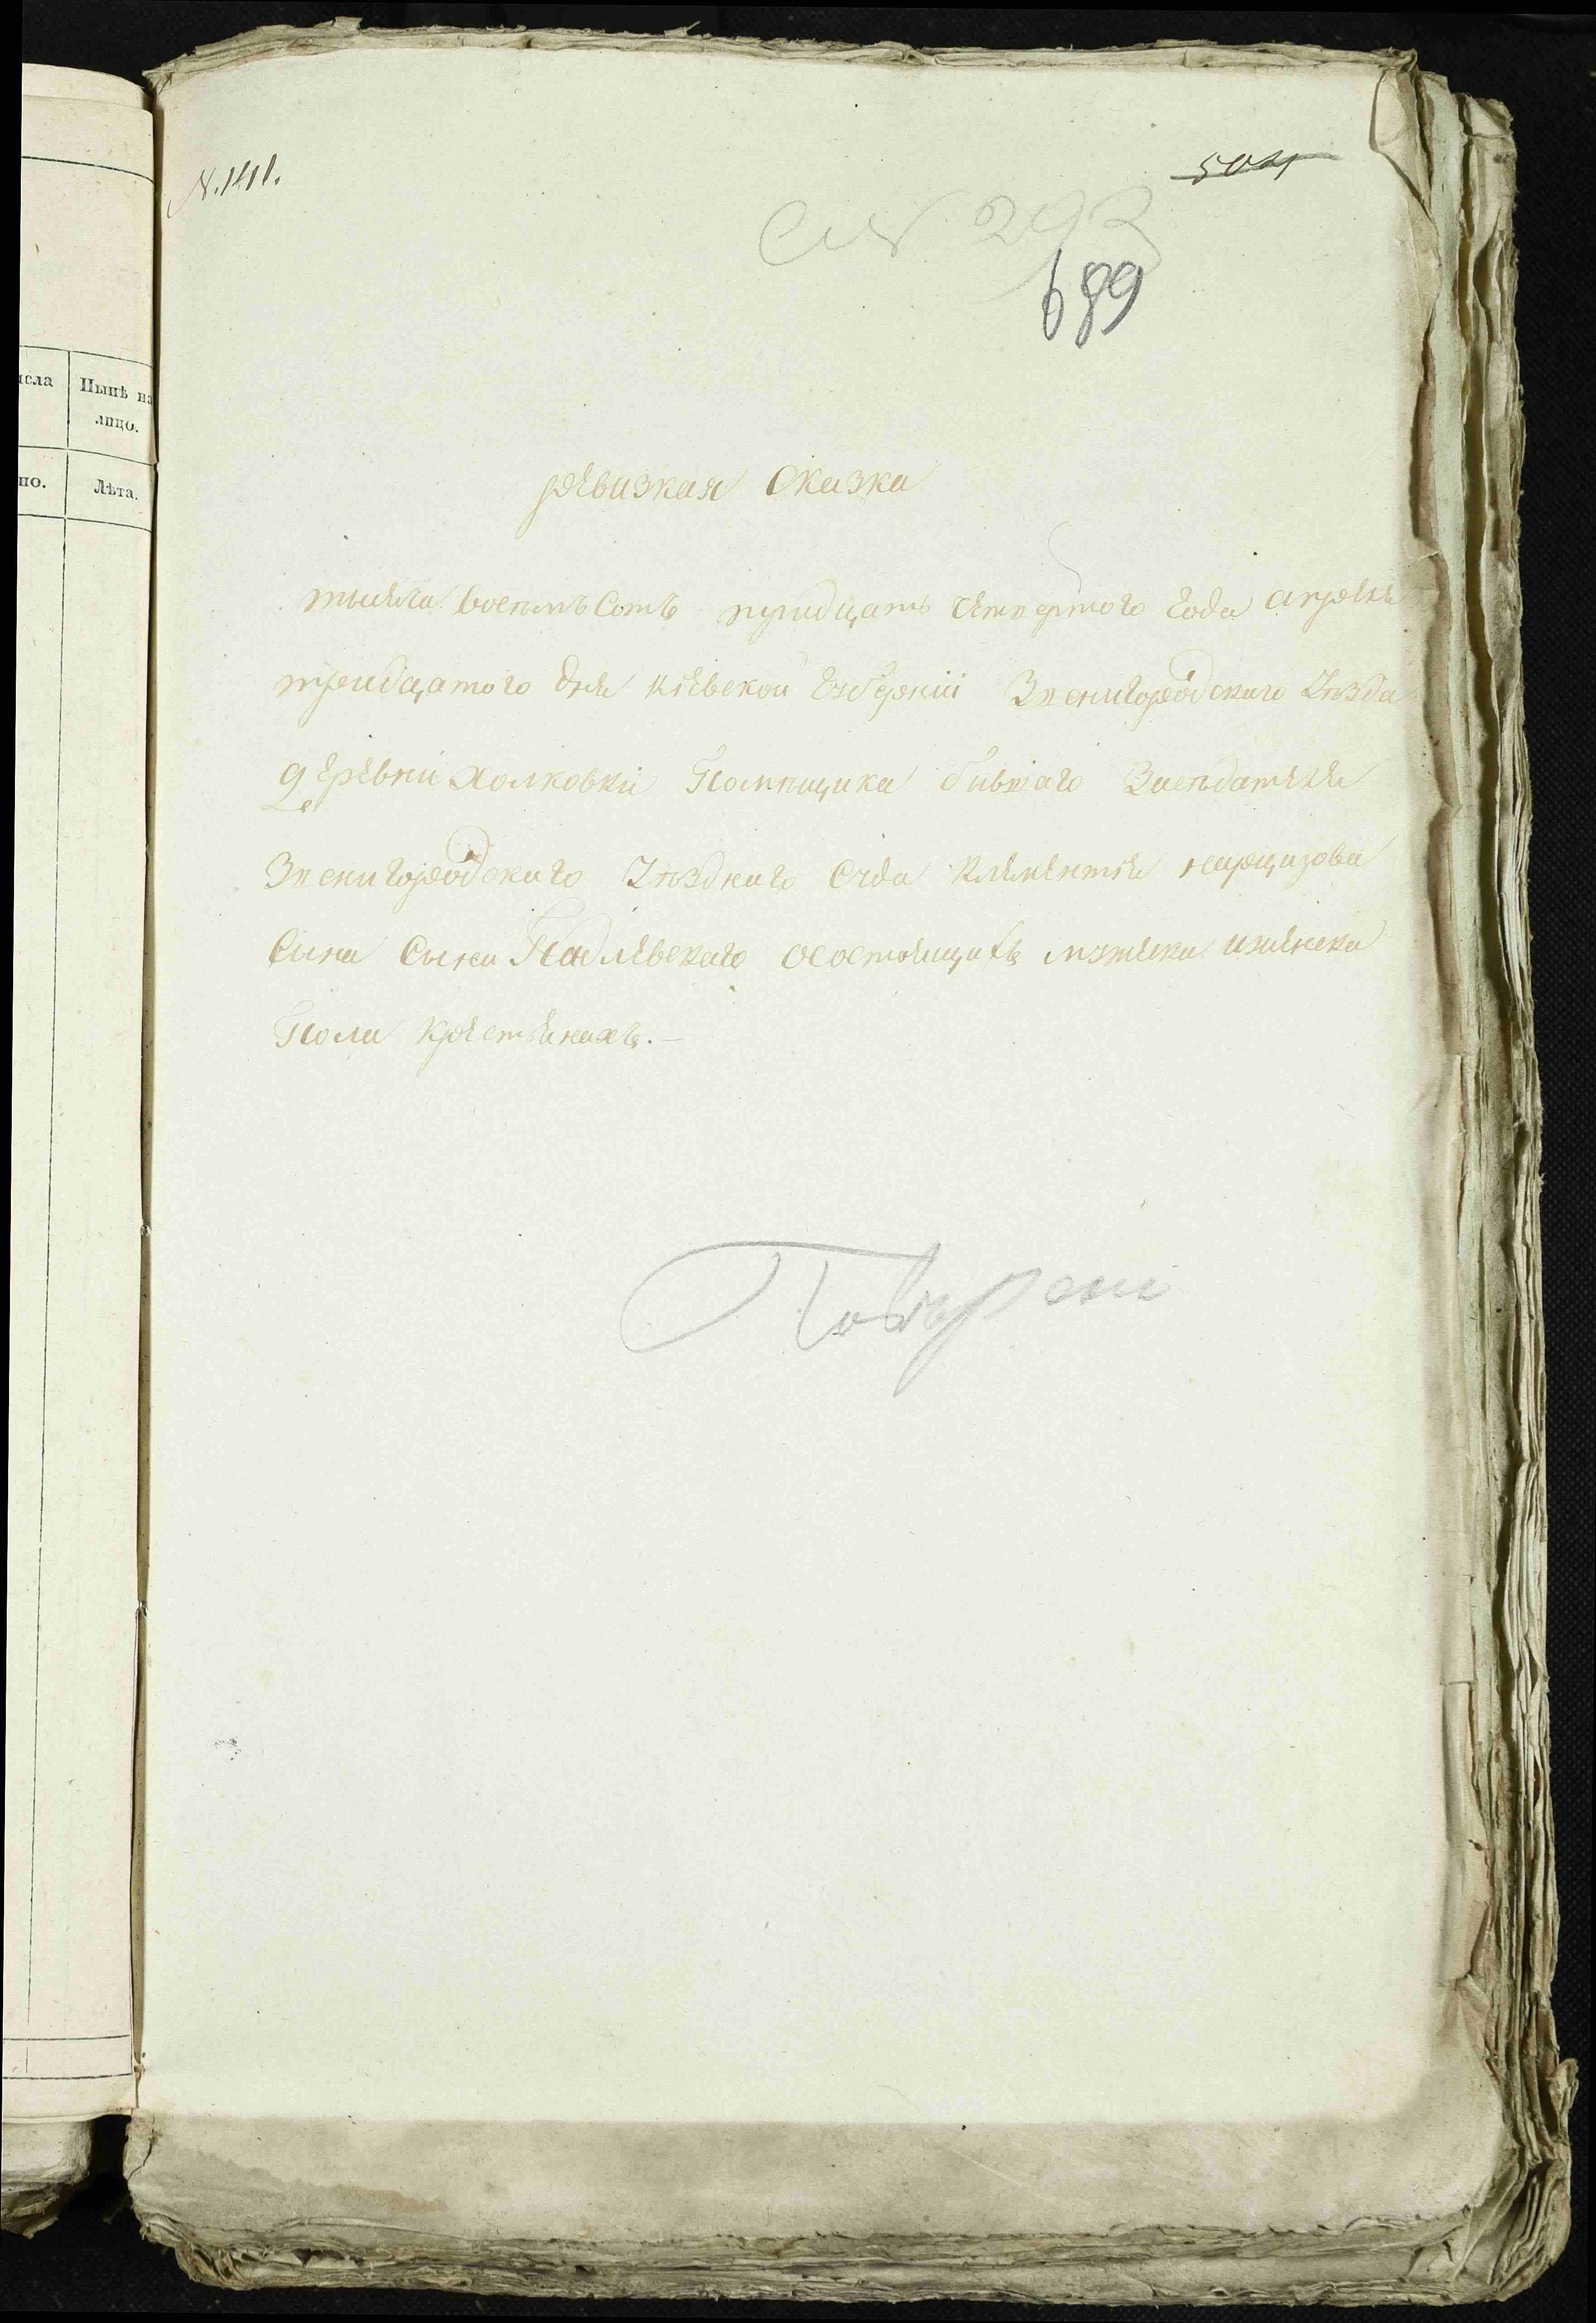 N. 1411.
504
См 293
689
исла
Нынѣ на
лицо.
но.
Лѣта.
ревизкая Сказка
тысеча восемъ Сотъ тридцать четвертого года апреля
тридцатого дня кіевской Губерніи Звенигородскаго Уѣзда
деревни Холковки Помѣщика бившаго Засѣдателя
Звенигородскаго Уѣзднаго Суда Клементія нарцизова
Сына Сына Падлевскаго осостоящихъ мужеска иженска
Пола крестьянахъ.—